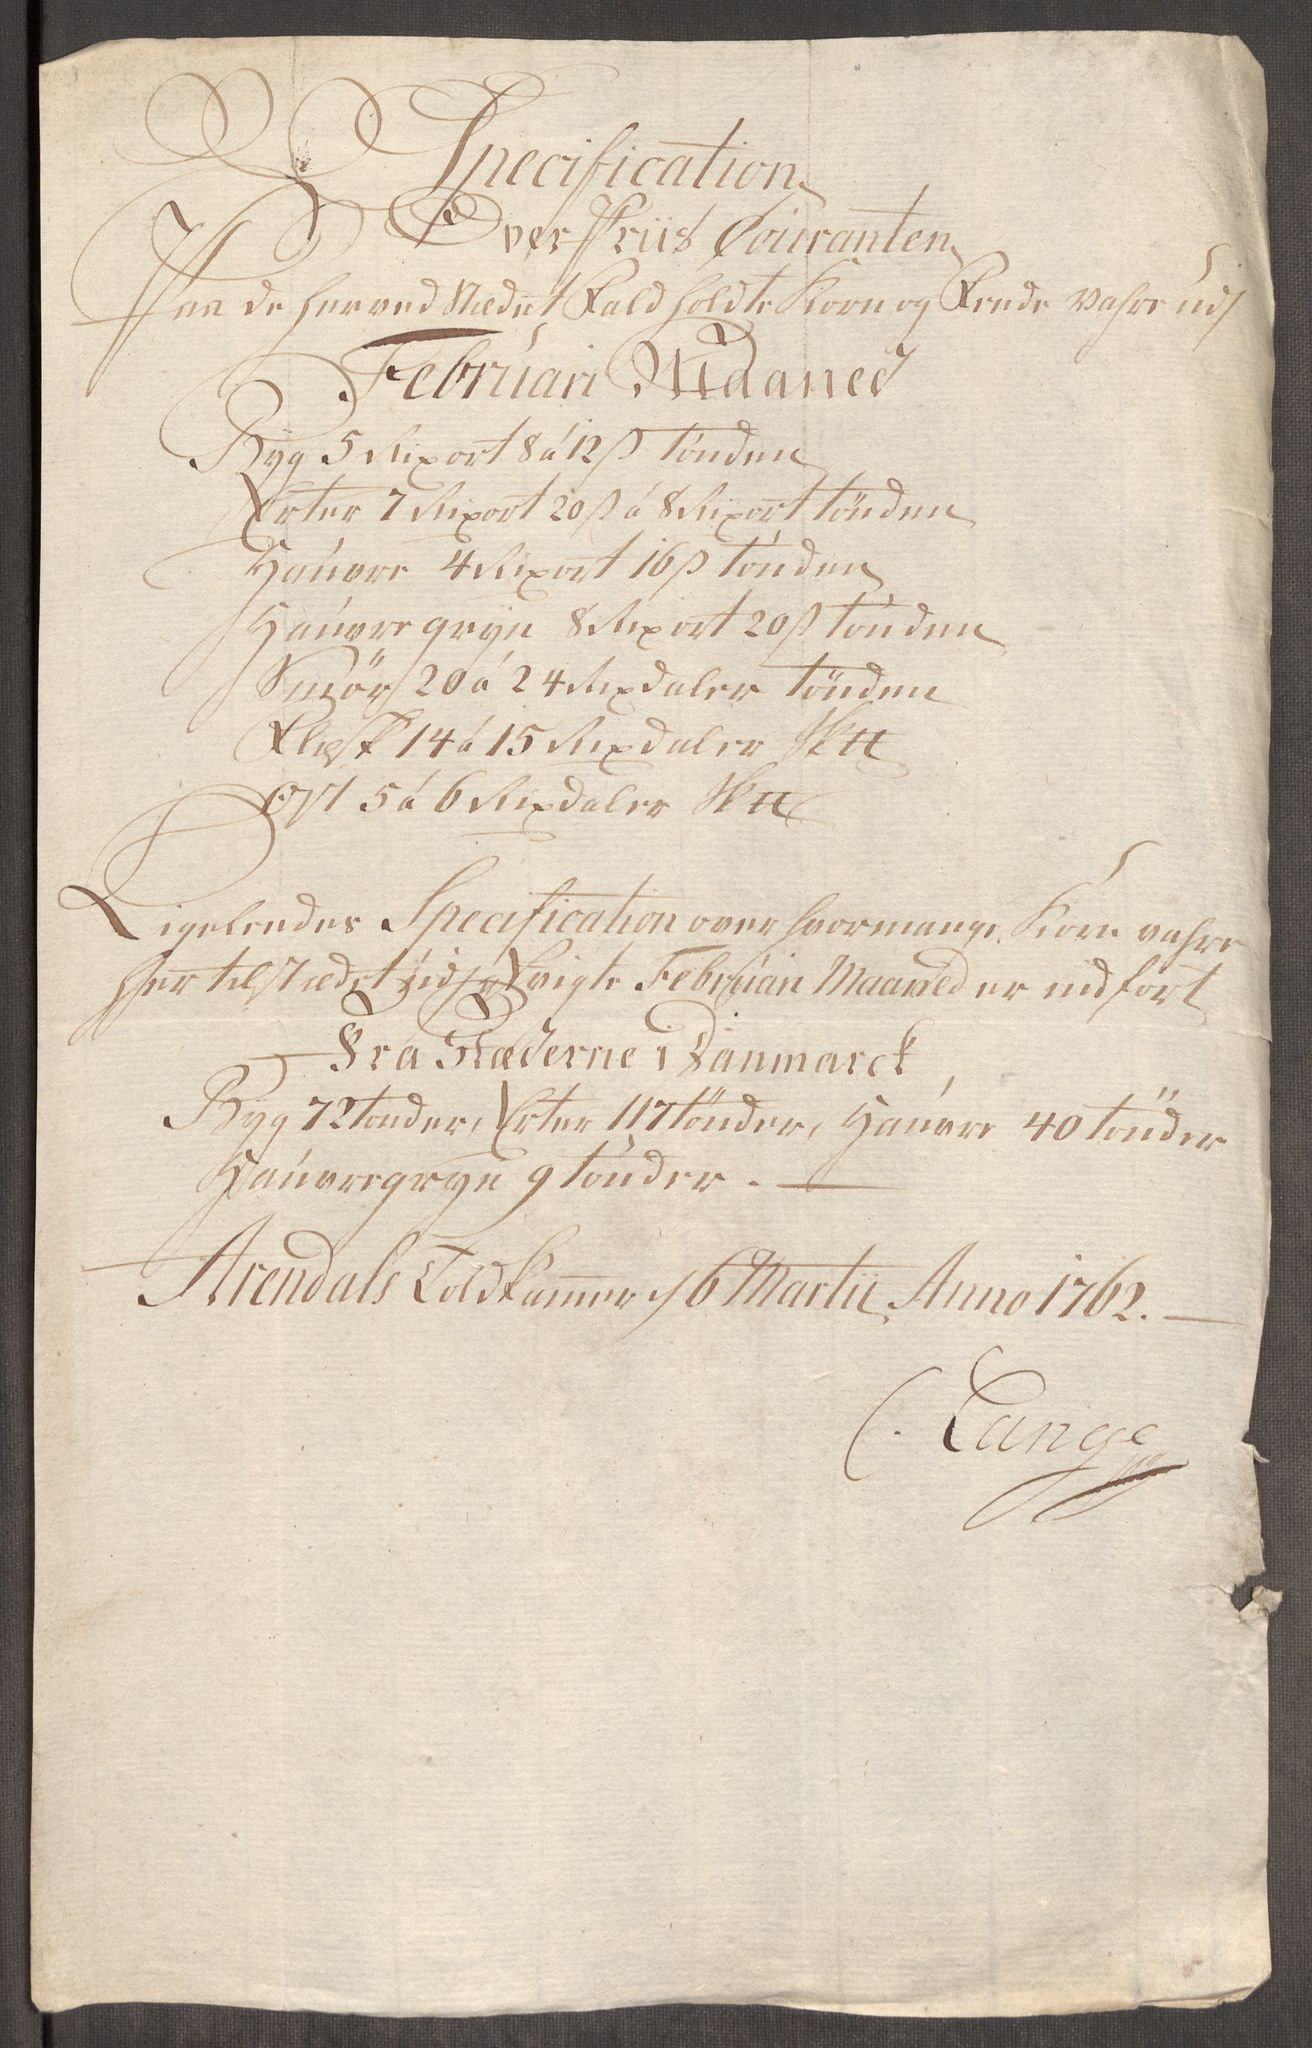 Specification
Over Priis Couranten
Paa de her ved Stædet Fald holdte Korn og Fende Vahre udj
Februari Maaned
Byg 5 Rixort 8 á 12 ß tønden
Erter 7 Rixort 20 ß á 8 Rixort tönden
Haúvre 4 Rixort 16 ß tønden
Haúvregryn 8 Rixort 20 ß tønden
Smör 20 á 24 Rixdaler tönden
Flæsk 14 á 15 Rixdaler Sk℔
Ost 5 á 6 Rixdaler Sk℔
Ligeleedes Specification over hvormange Korn vahre
her til Stædet udj Februari Maaned er indført
Fra Stæderne i Danmarck
Byg 72 tønder, Erter 117 tönder, Haúvre 40 tönder
Haúvregryn 9 tønder. —
Arendals Toldkammer d 6 Martii Anno 1762. —
C. Lange